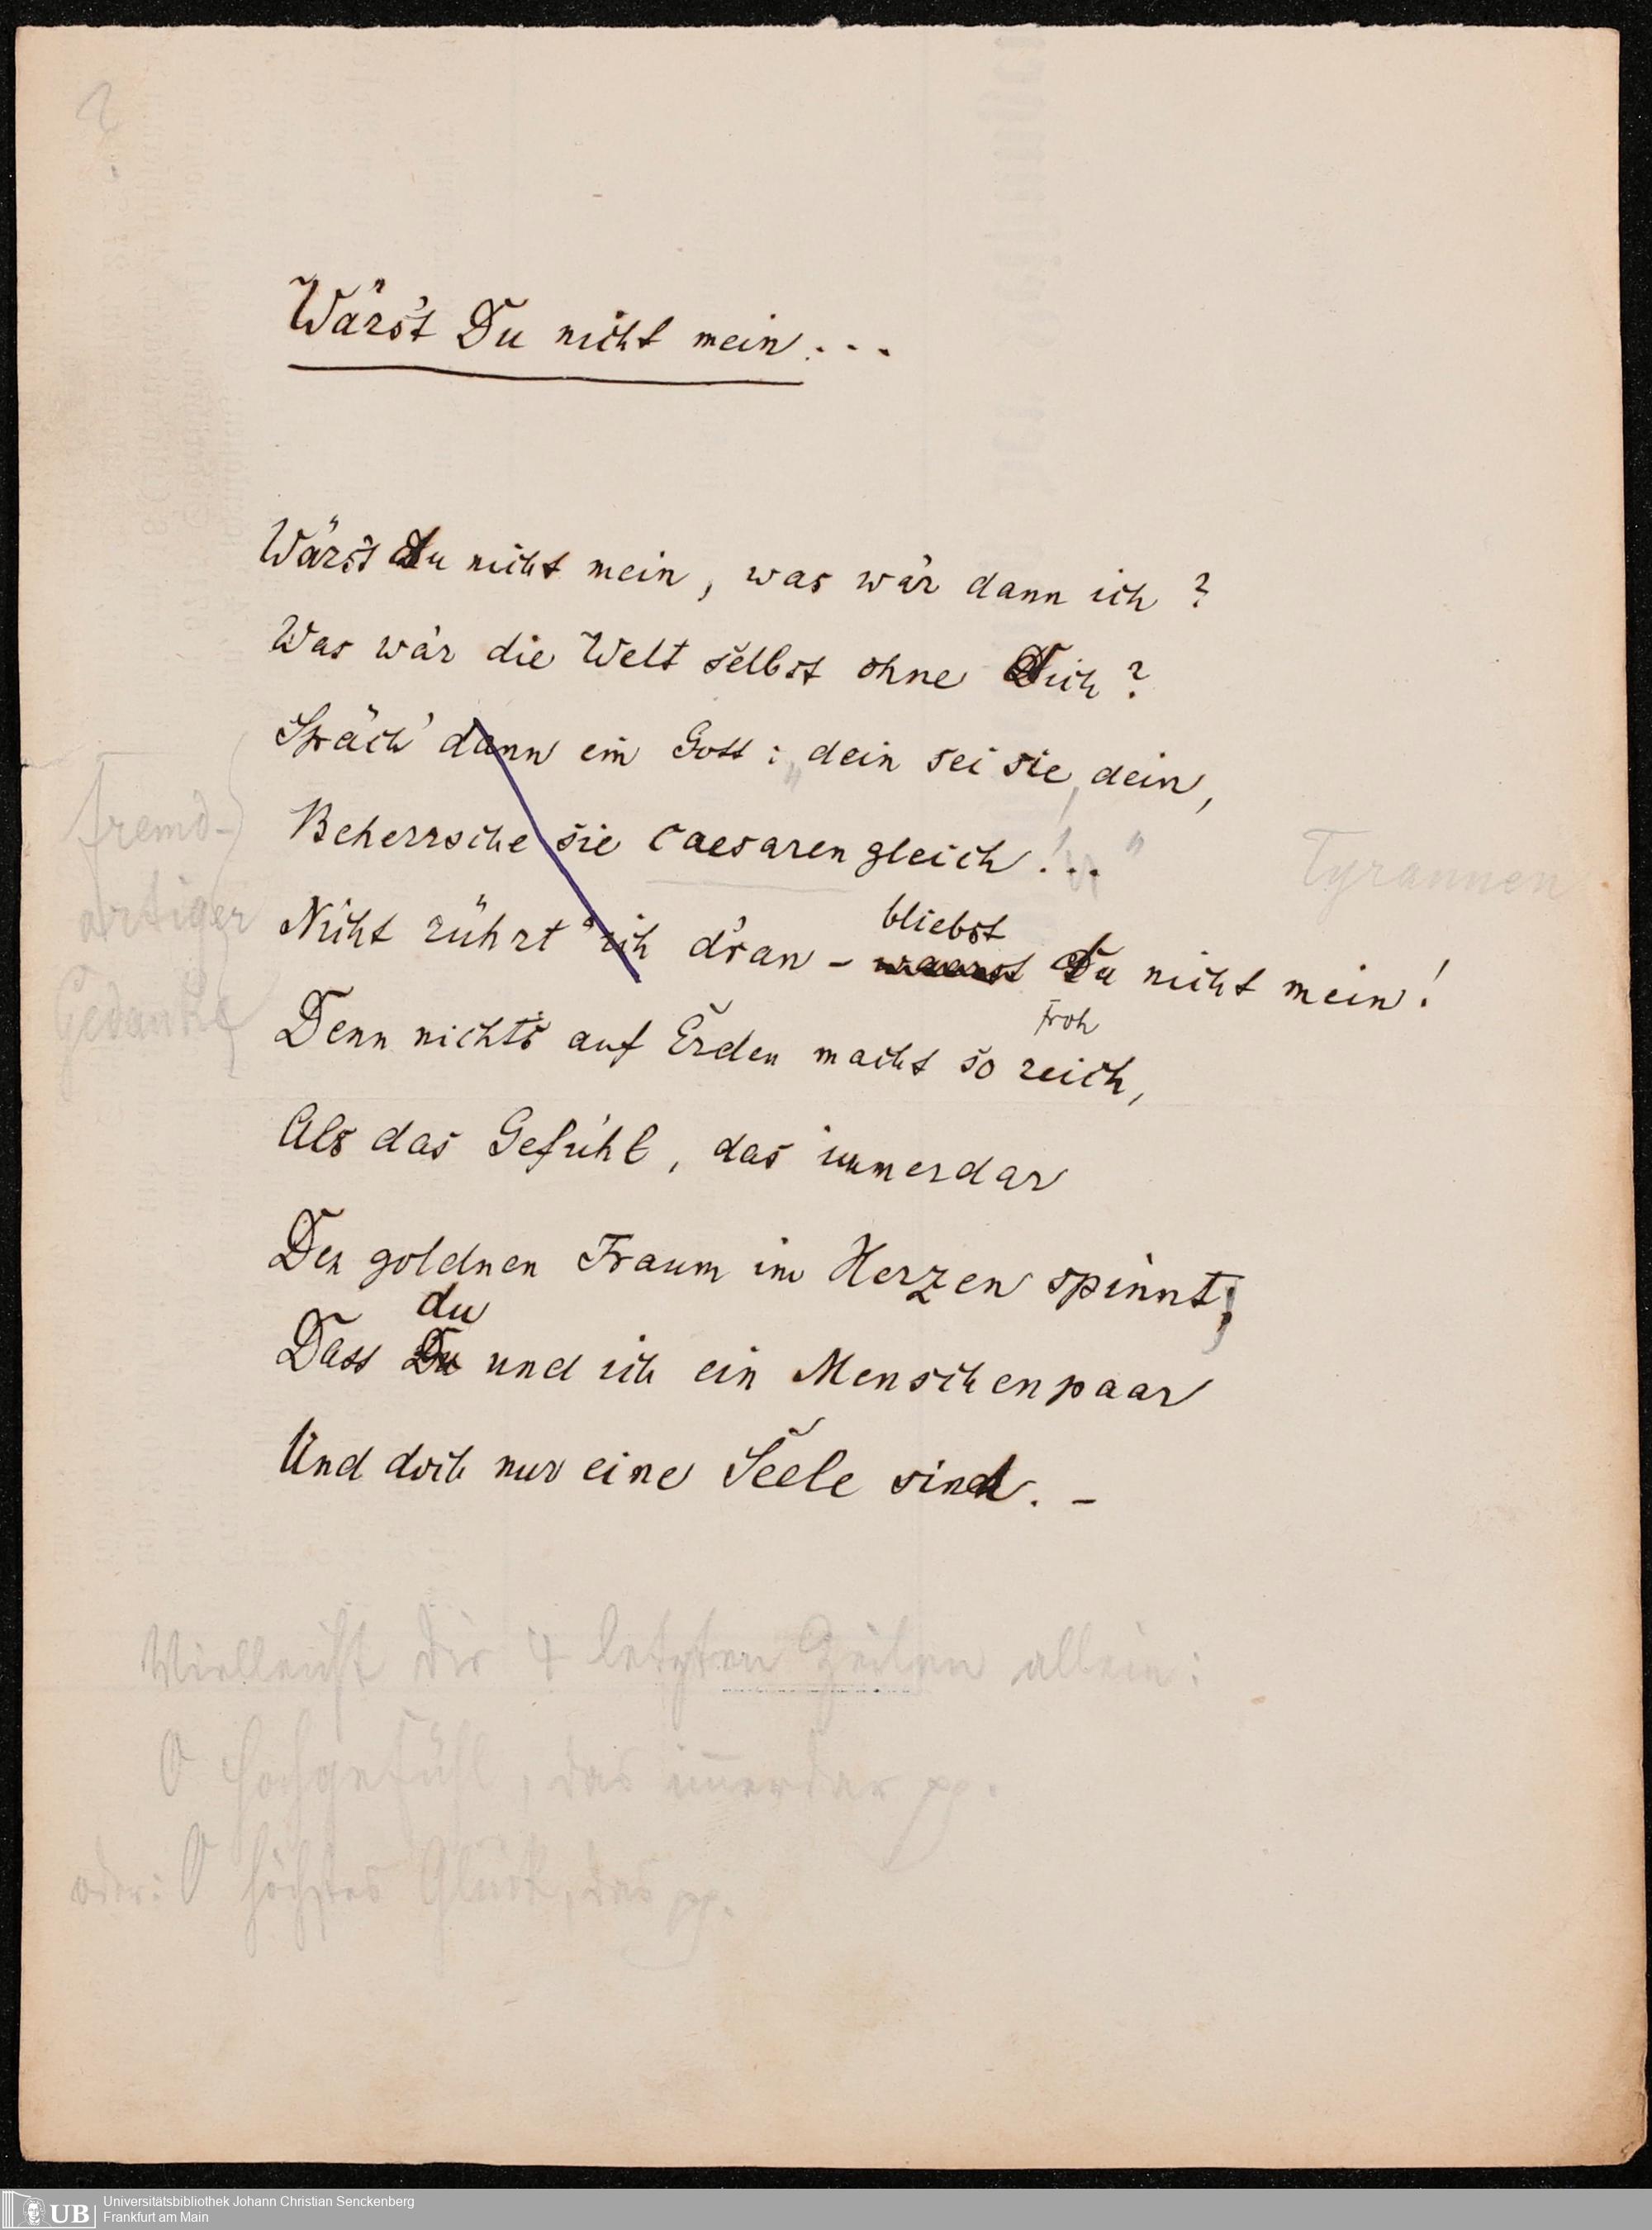 ?
Wärst Du nicht mein...
Wärst du nicht mein, was wär dann ich?
Was wär die Welt selbst ohne Dich?
Spräch' dann ein Gott: „dein sei sie, dein,
Beherrsche sie caesarengleich!.."
Tyrannen
fremd-
artiger
Gedanke
bliebst
Nicht rührt' ich d'ran – Du nicht mein!
froh
Denn nichts auf Erden macht so reich,
Als das Gefühl, das immerdar
Den goldnen Traum im Herzen spinnt;
du
Dass Du und ich ein Menschenpaar
Und doch nur eine Seele sind. –
Vielleicht die 4 letzten Zeilen allein:
O Hochgefühl, das im̄erdar pp.
oder: O höchstes Glück, das pp.
UB
Universitätsbibliothek Johann Christian Senckenberg
Frankfurt am Main